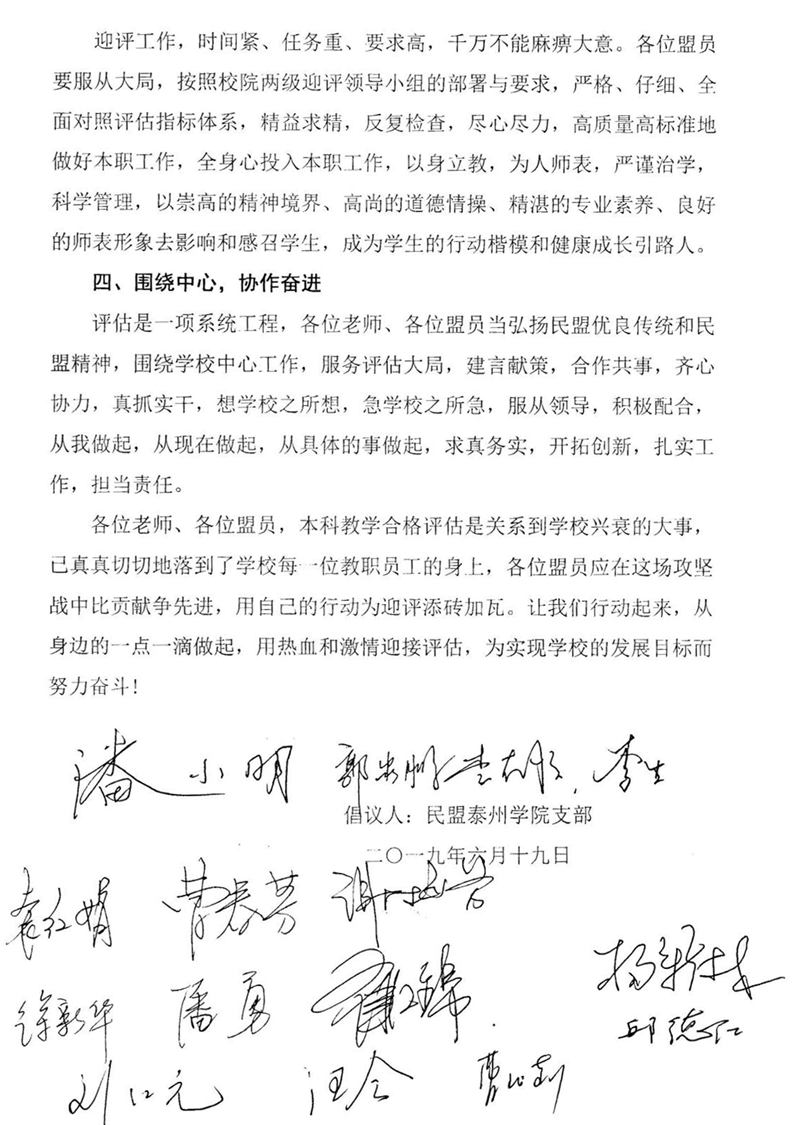 迎评工作，时间紧、任务重、要求高，千万不能麻痹大意。各位盟员
要服从大局，按照校院两级迎评领导小组的部署与要求，严格、仔细、全
面对照评估指标体系，精益求精，反复检查，尽心尽力，高质量高标准地
做好本职工作，全身心投入本职工作，以身立教，为人师表，严谨治学，
科学管理，以崇高的精神境界、高尚的道德情操、精湛的专业素养、良好
的师表形象去影响和感召学生，成为学生的行动楷模和健康成长引路人。
四、围绕中心，协作奋进
评估是一项系统工程，各位老师、各位盟员当弘扬民盟优良传统和民
盟精神，围绕学校中心工作，服务评估大局，建言献策，合作共事，齐心
协力，真抓实干，想学校之所想，急学校之所急，服从领导，积极配合，
从我做起，从现在做起，从具体的事做起，求真务实，开拓创新，扎实工
作，担当责任。
各位老师、各位盟员，本科教学合格评估是关系到学校兴衰的大事，
已真真切切地落到了学校每一位教职员工的身上，各位盟员应在这场攻坚
战中比贡献争先进，用自己的行动为迎评添砖加瓦。让我们行动起来，从
身边的一点一滴做起，用热血和激情迎接评估，为实现学校的发展目标而
努力奋斗！
潘小明 李生
倡议人：民盟泰州学院支部
二〇一九年六月十九日
袁红娟 曹春芳
徐新华 潘勇
邱德仁
刘仁元 汪令